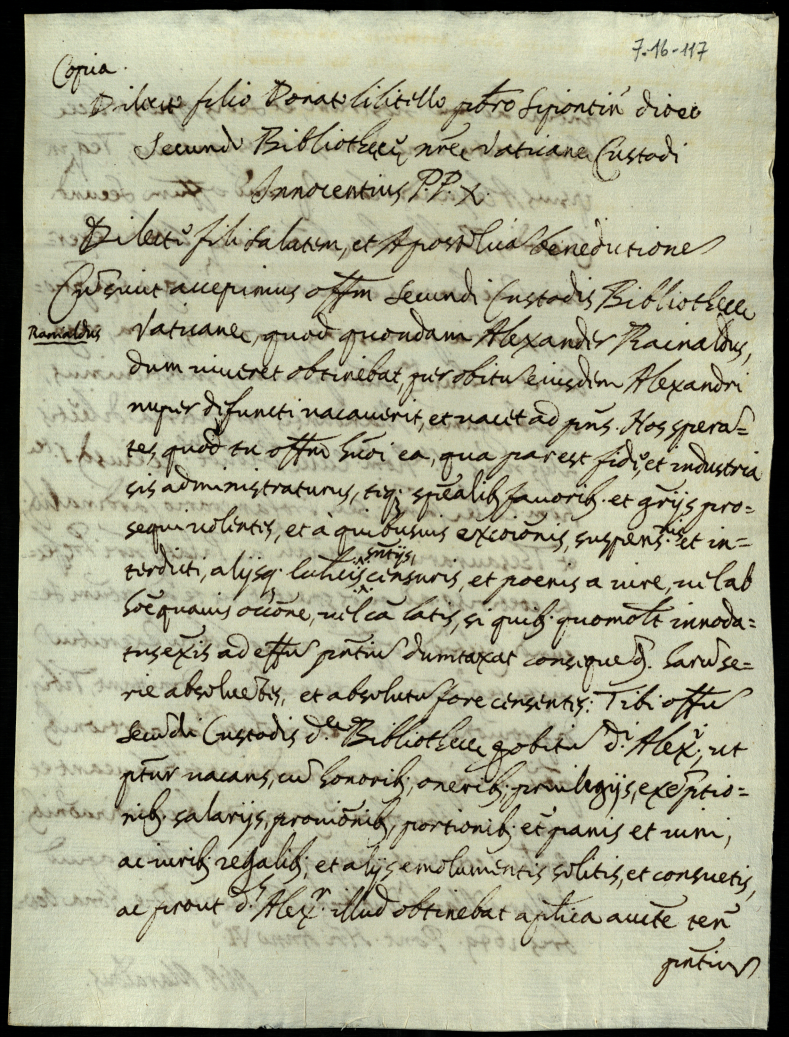 7-16-117
Copia.
Dilecto filio Donato Lilitello pbro Sipontin dioec
Secundo Bibliothecę nrę Vaticanę Custodi
Innocentius P.P. X.
Dilecte fili salutem, et Apostolicā benedictionē
Cū sicut accepimus offm Secundi Custodis Bibliothecę
Rainaldus
Vaticanę, quod quondam Alexander Rainaldus,
dum viveret obtinebat, per obitū eiusdem Alexandri
nuper defuncti vacaverit, et vacet ad pns. Nos speran=
tes, quod tu offm hmoi ea, qua par est fide, et industria
sis administraturus, teq; spealib; favorib; et grijs pro=
sequi volentes, et a quibusvis excoionis, suspens.nis et in=
terdicti, alijsq; eccticis sntijs, censuris, et poenis a iure, vel ab
hoē quavis occōne, vel cā latis, si quib; quomolt innoda=
tus exis ad effū pntiū dumtaxat conseque[n]d. harū se=
rie absolventes, et absolutū fore censentes: Tibi offū
Secūdi Custodis d.ę Bibliothecę p obitū d.i Alex.i, ut
pfur vacans, cū honorib; onerib; privilegijs, exēptio=
nib; salarijs, provisionib; portionib; et panis et vini,
ac iurib; regalib; et alijs emolumentis solitis, et consuetis,
ac prout d.s Alex.r illud obtinebat aplica aucte ten
pntiū